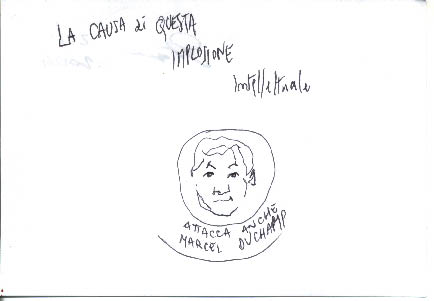 LA CAUSA di QUESTA
IMPLOSIONE
intellettuale
ATTACCA ANCHE
MARCEL DUCHAMP